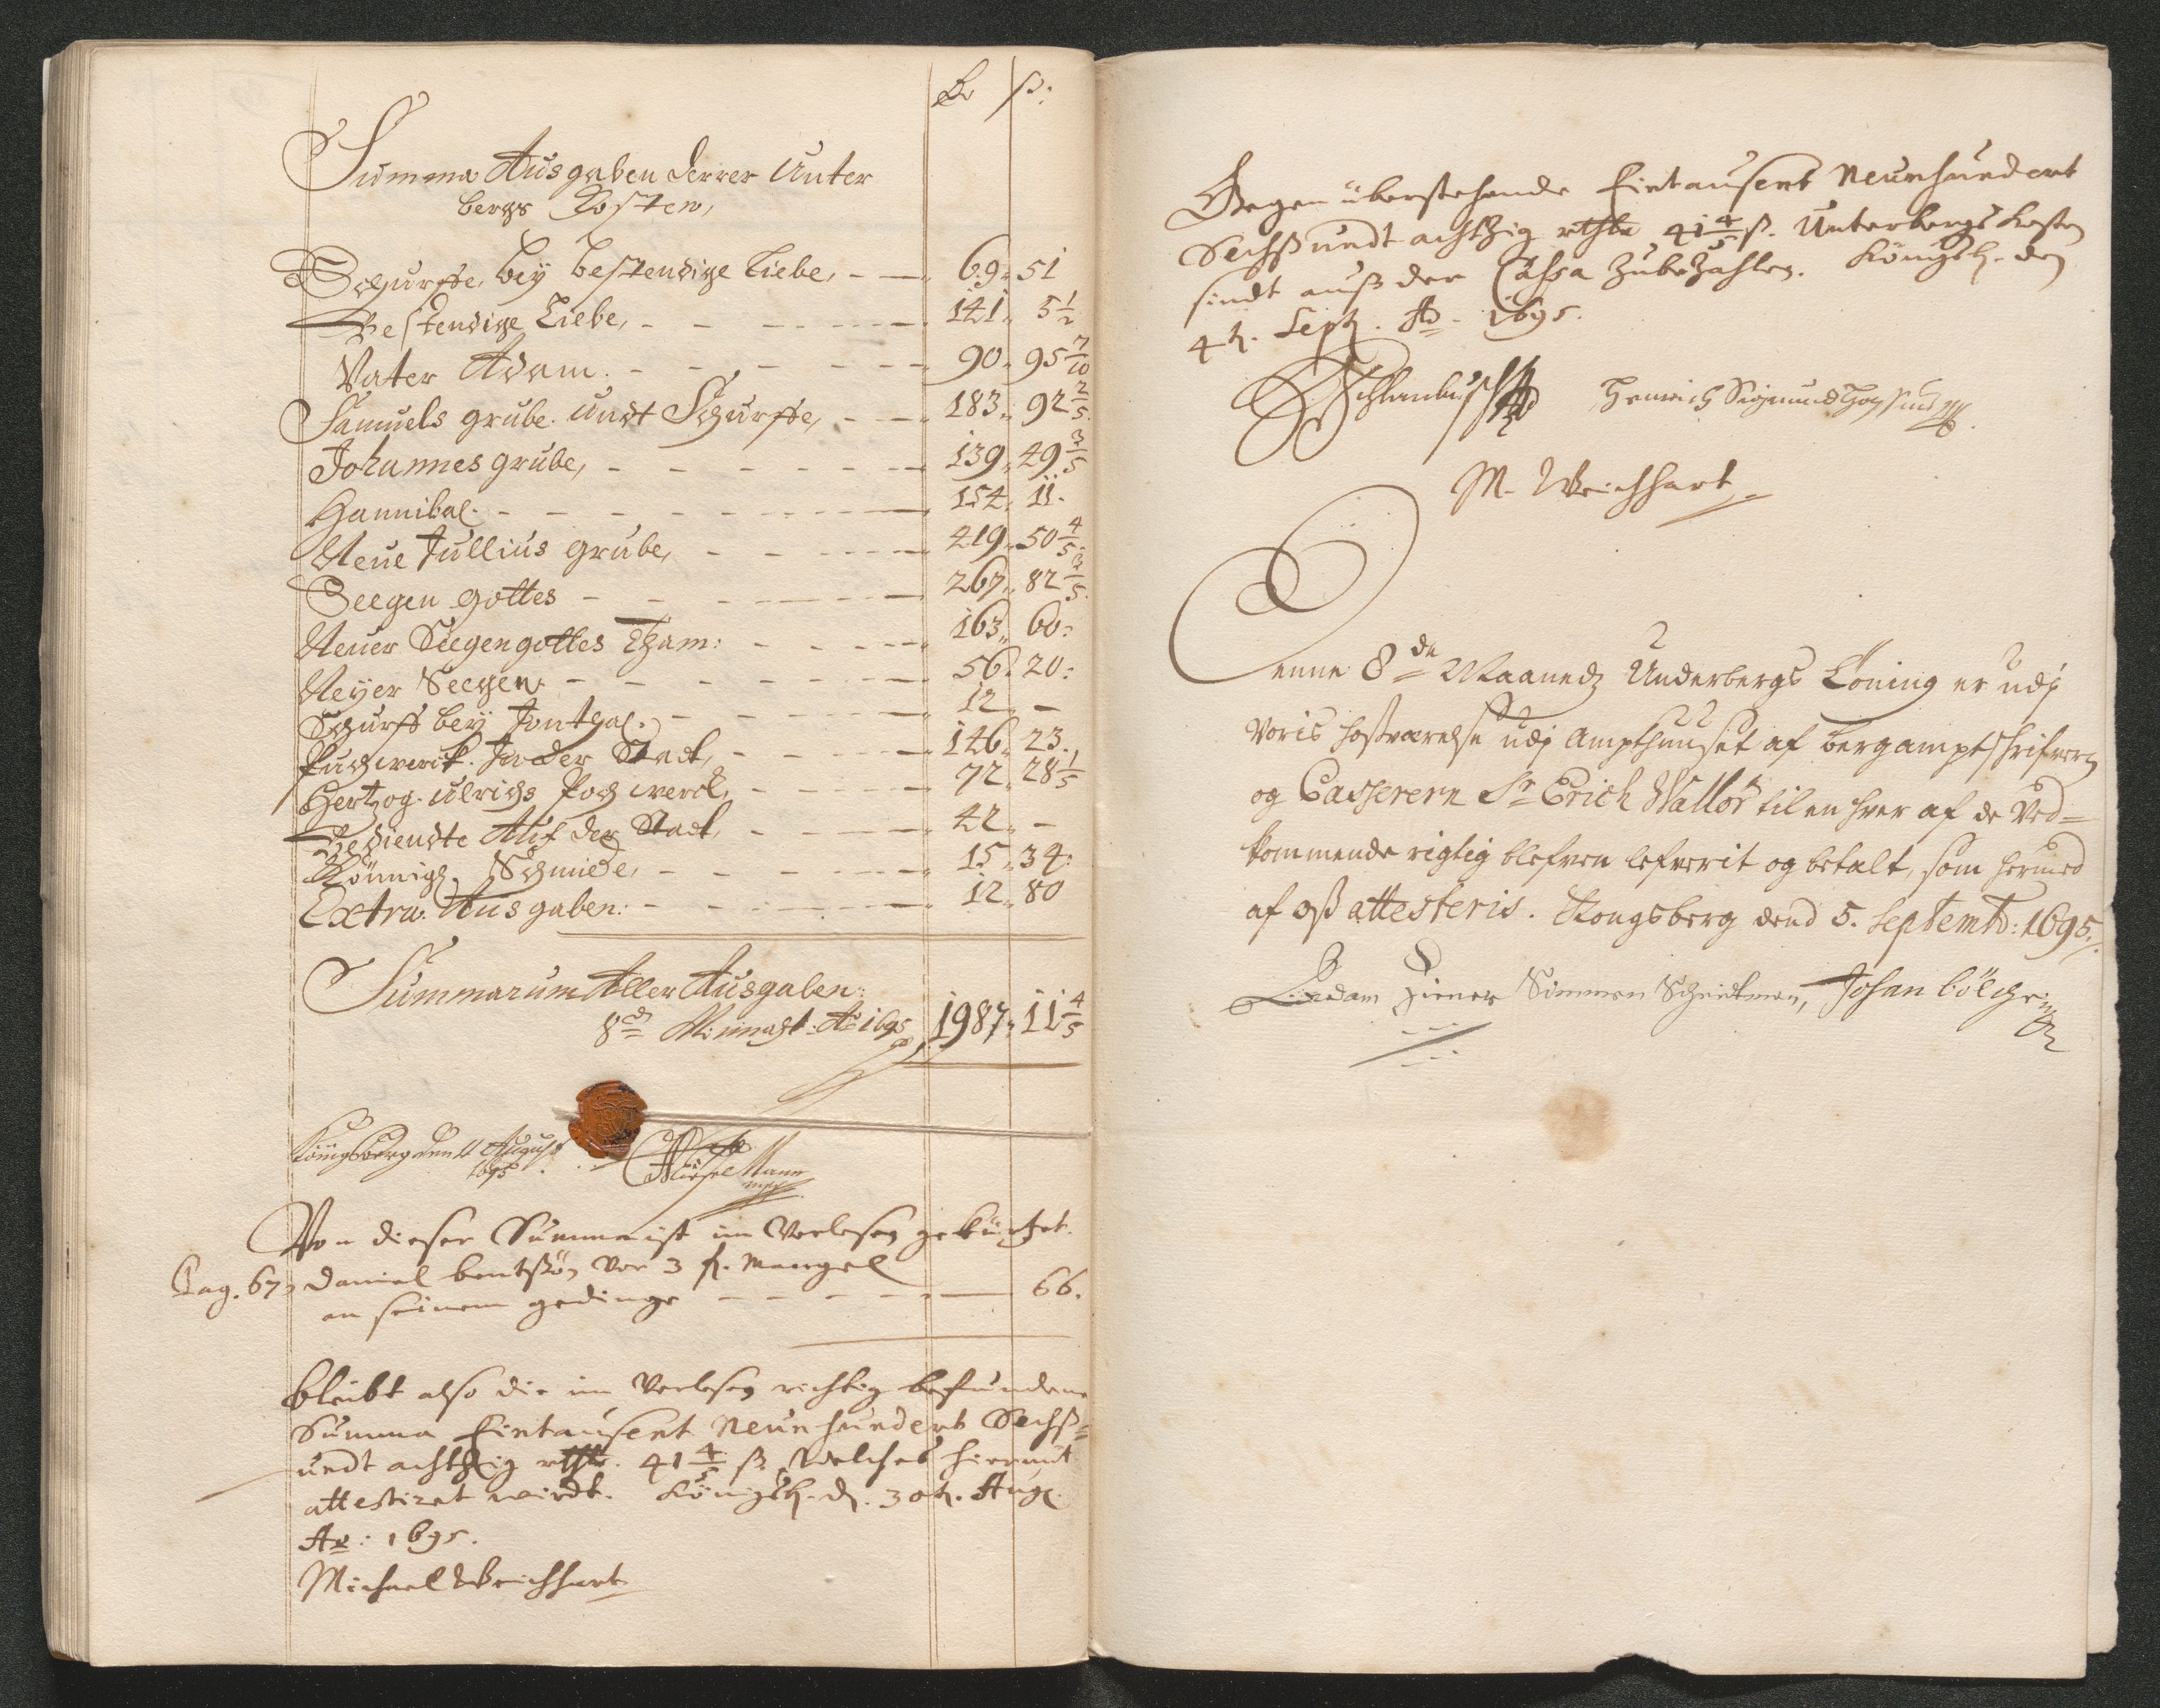 Rd ß:
Summa Ausgaben derrer Unter
bergs Kosten,
Schurffe, bey bestendige Liebe, 69 51
Bestendige Liebe, 141 5 1/2
Vater Adam. 90 95 7/10
Samuels grube. undt Schurffe, 183 92 2/5
Johannes grube, 139 49 3/5
Hannibal. 154 11.
Neue Jullius grube, 419 50 4/5
Seegen gottes 267 82 3/5
Neuer Seegen gottes 163 60:
Neyer Seegen. 56 20:
Schurff bey Jonthal. 12 —
Puchwerck. In der Stadt, 146 23.
Hertzog. Ulrichs Poch werck, 72 28 1/5
Bediente Auf der Stadt, 42 —
Königl. Schmiede, 15 34:
Extra. Ausgaben: 12 80
Summarum Aller Ausgaben:
8 Monaht: Ao 1695 1987 11 4/5
Königsberg den 11 August
1695.
Von dieser Summa ist im Verlesen gekürtzet.
Pag. 67, Daniel bentßön vor 3 fl. Mangel
an seinem gedinge 66.
bleibt also die im Verlesen richtig befundene
Summa Eintausent Neunhundert Sechß=
undt achtzig rthlr. 41 4/5 ß. Welches hiermit
attestiret wirdt. Königsb. d. 30t. Aug.
Ao: 1695.
Michael Weichhart
Gegen überstehende Eintausent Neunhundert
Sechß undt achtzig rthlr 41 4/5 ß. Unterbergs Kosten
sindt auß der Cassa zubezahlen. Königsb. den
4t. Sept. Ao. 1695.
Schlanbusch Henrich Sigmund
M. Weichhart
Denne 8de Maanedz Underbergs Löning er udj
Voris hosværelse udj Ampthuuset af bergamptschrifvern
og Casserern Sr Erich Wallör til en hver af de Ved=
kommende rigtig blefven lefverit og betalt, som hermed
af oß attesteris. Kongsberg dend 5. Septemb: 1695.
Adam Simmen Johan